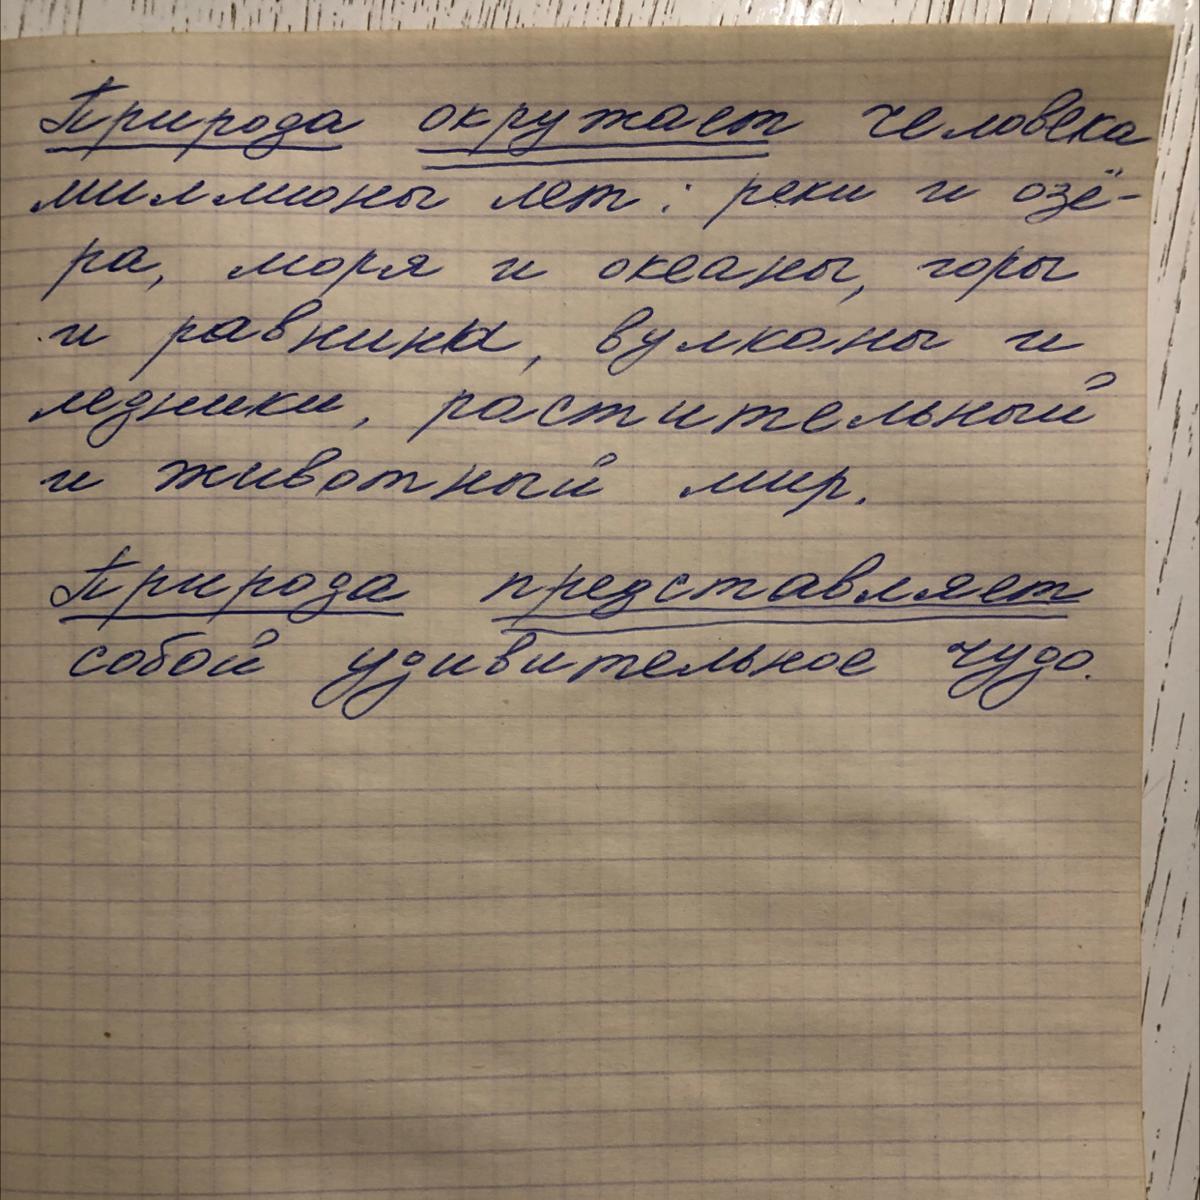 Природа окружает человека
миллионы лет: реки и озё-
ра, моря и океаны, горы
и равнины, вулканы и
ледники, растительный
и животный мир.
Природа представляет
собой удивительное чудо.